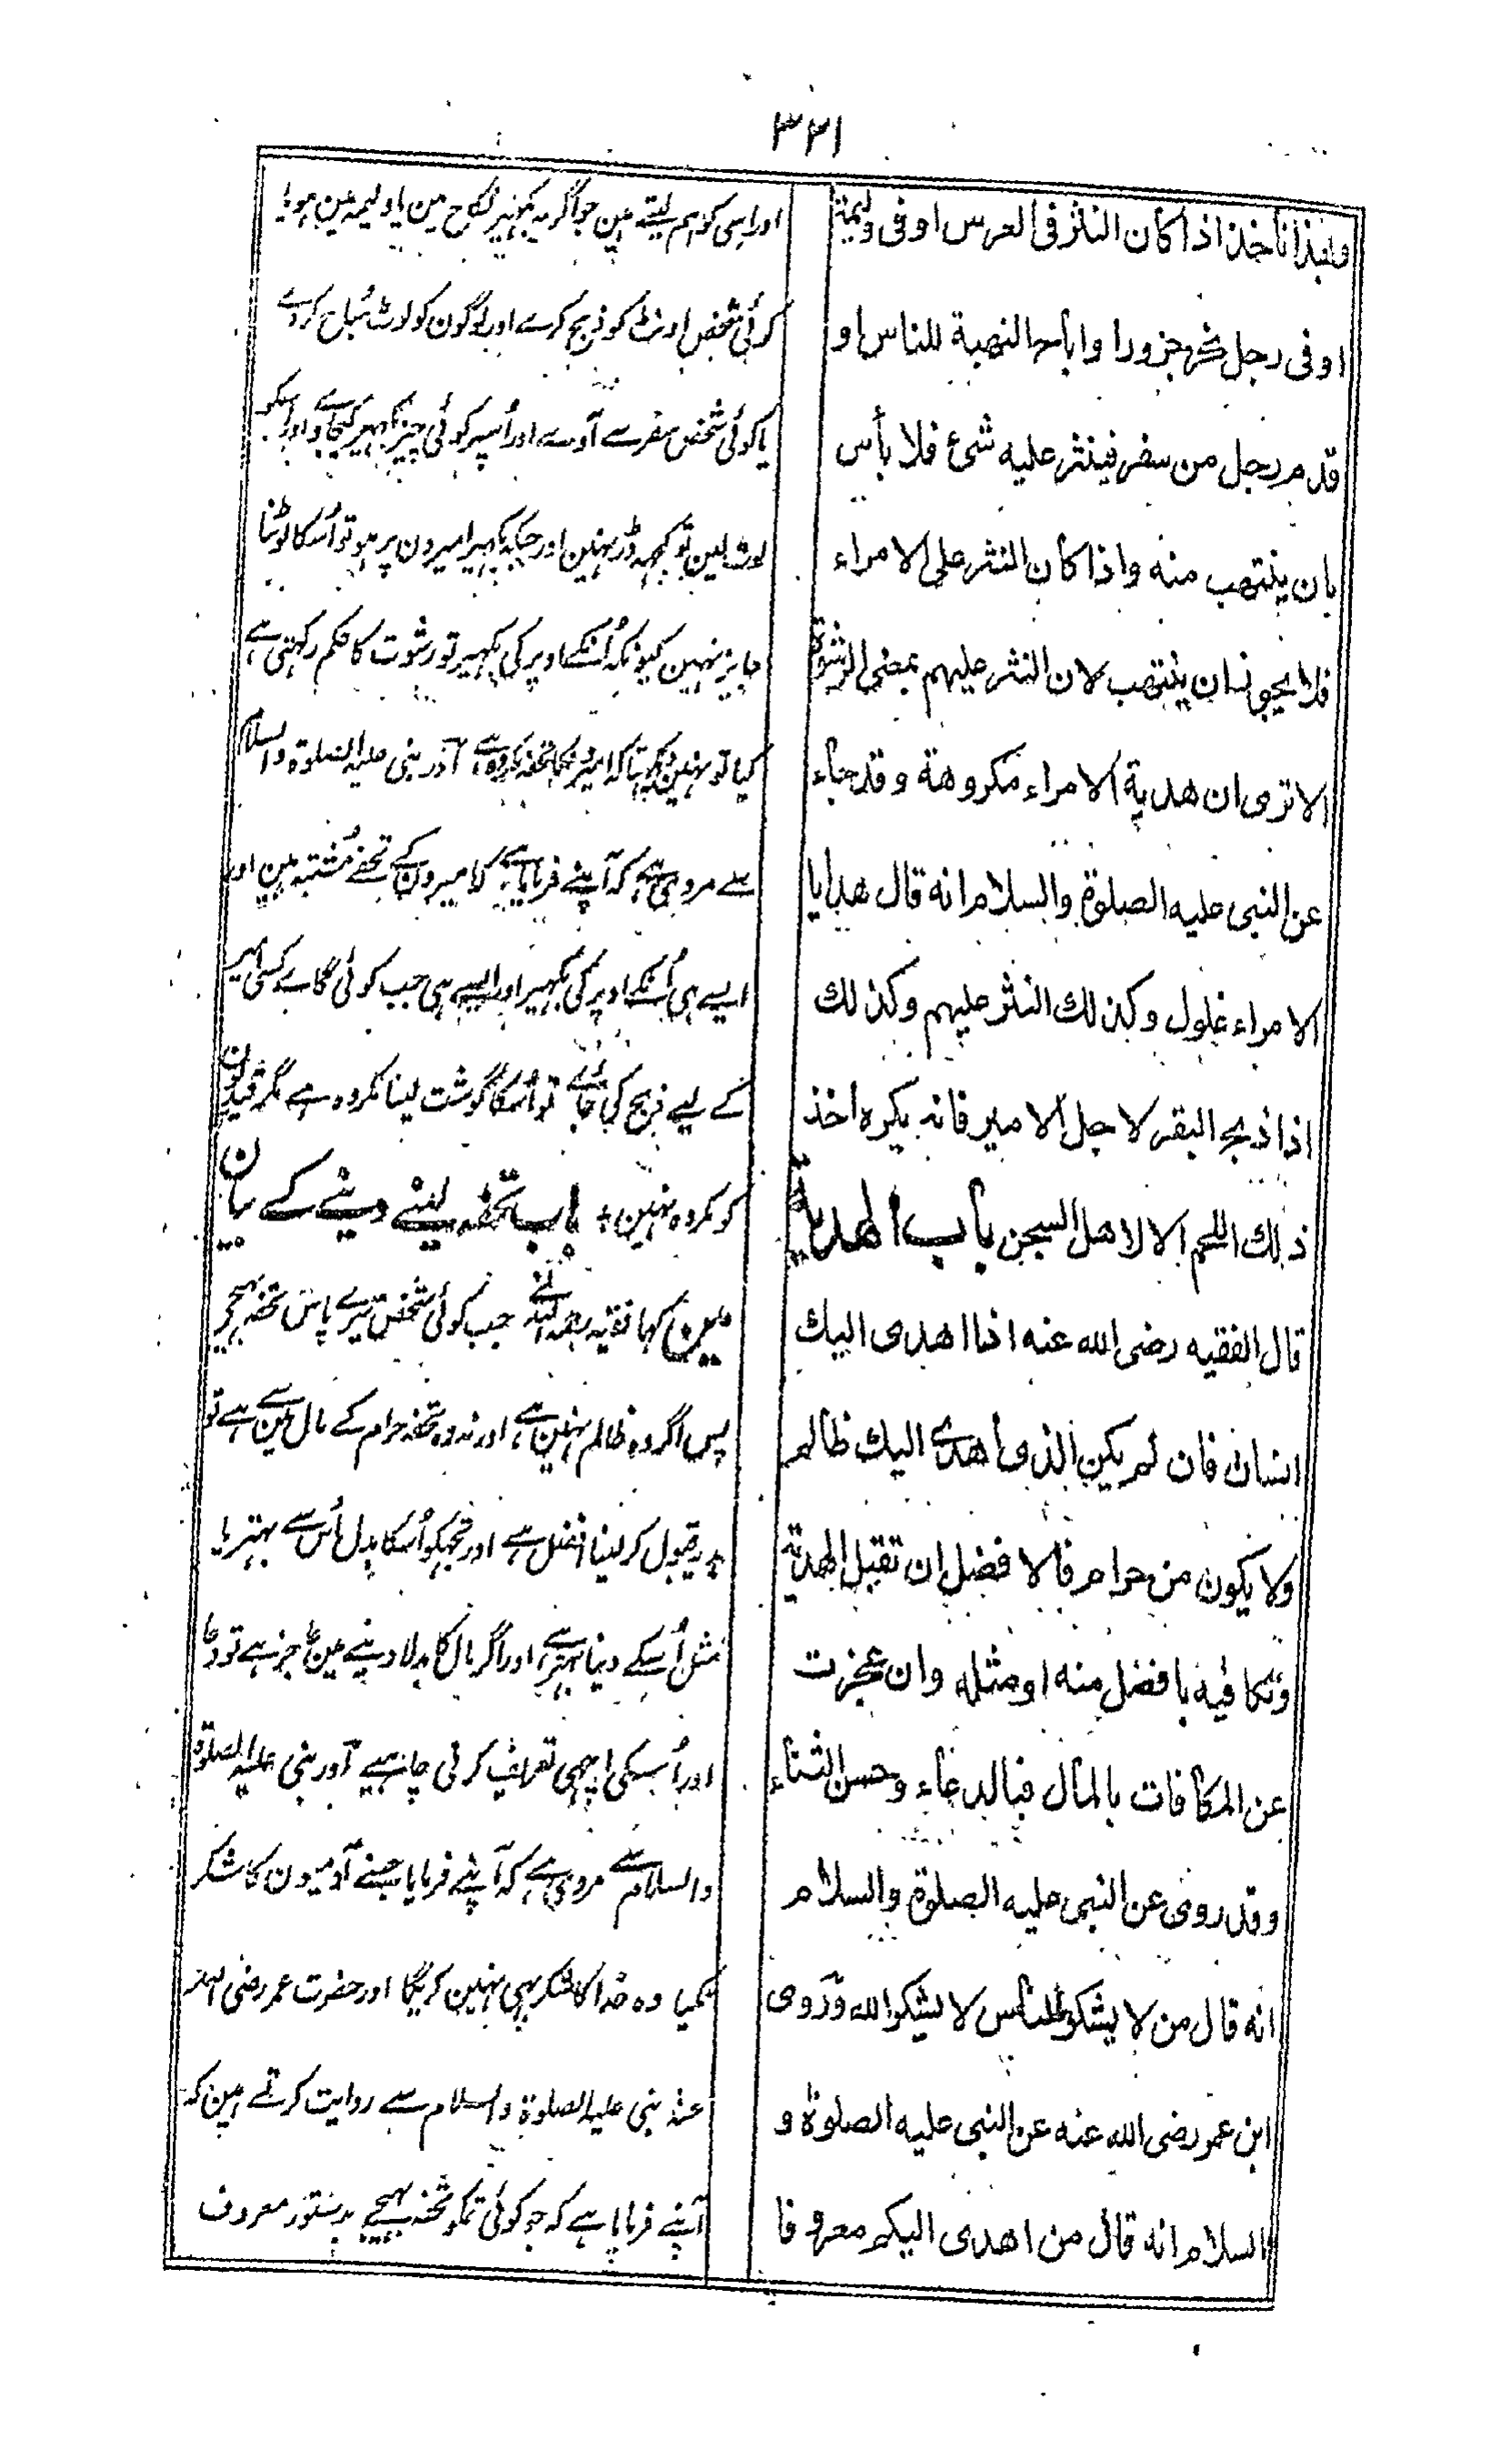 ۳۲۱
فبهذا نأخذ اذا كان النثر فى العرس او فى وليمة
او فى رجل نحر جزورا واباح النهبة للناس او
قدم رجل من سفر فينثر عليه شئ فلا بأس
بان ينتهب منه واذا كان النثر على الامراء
فلا يجوز ان ينتهب لان النثر عليهم بمعنى الرشوة
الا ترى ان هدية الامراء مكروهة وقد جاء
عن النبى عليه الصلوة والسلام انه قال هدايا
الامراء غلول وكذلك النثر عليهم وكذلك
اذا ذبح البقر لاجل الامير فانه يكره اخذ
ذلك اللحم الا لاهل السجن باب الهداية
قال الفقيه رضى الله عنه اذا اهدى اليك
انسان فان لم يكن الذى اهدى اليك ظالم
ولا يكون من حرام فالافضل ان تقبل الهدية
وتكافيه بافضل منه او مثله وان عجزت
عن المكافات بالمال فبالدعاء وحسن الثناء
وقد روى عن النبى عليه الصلوة والسلام
انه قال من لا يشكر للناس لا يشكر الله وروى
ابن عمر رضى الله عنه عن النبى عليه الصلوة و
السلام انه قال من اهدى اليكم معروفا
اور اسی کو ہم لیتے ہین جو اگر یہ بکھیر نکاح مین یا ولیمہ مین ہو یا
کوئی شخص اونٹ کو ذبح کرے اور لوگون کو لوٹ مُباح کردے
یا کوئی شخص سفر سے آوے اور اُسپر کوئی چیز بکھیر کیجاوے اور اُسکو
لوٹ لین تو کچھ ڈر نہین اور جبکہ بکھیر امیرون پر ہو تو اُسکا لوٹنا
جایز نہین کیونکہ اُنکے اوپر کی بکھیر تو رشوت کا حکم رکھتی ہے
کیا تو نہین دیکھتا کہ امیرونکا تحفہ مکروہ ہے اور نبی علیہ الصلوة والسلام
سے مروی ہے کہ آپنے فرمایا ہے کہ امیرون کے تحفے مُشتبہ ہین اور
ایسے ہی اُنکے اوپر کی بکھیر اور ایسے ہی جب کوئی گاے کسی امیر
کے لیے ذبح کی جاے تو اُسکا گوشت لینا مکروہ ہے مگر قیدیون
کو مکروہ نہین ؛ باب تحفہ لینے دینے کے بیان
مین کہا فقیہ رحمہ اللہ نے جب کوئی شخص تیرے پاس تحفہ بھیجے
پس اگر وہ ظالم نہین ہے اور نہ وہ تحفہ حرام کے مال مین سے ہے تو
ہدیہ قبول کر لینا افضل ہے اور تجھکو اُسکا بدل اُس سے بہتر یا
مثل اُسکے دینا بہتر ہے اور اگر مال کا بدلا دینے مین عاجز ہے تو دعا
اور اُسکی اچھی تعریف کرنی چاہیے اور نبی علیہ الصلوة
والسلام سے مروی ہے کہ آپنے فرمایا جسنے آدمیون کا شکر
نکیا وہ خدا کا شکر بھی نہین کریگا اور حضرت عمر رضی اللہ
عنہ نبی علیہ الصلوة والسلام سے روایت کرتے ہین کہ
آپنے فرمایا ہے کہ جو کوئی تمکو تحفہ بھیجے بدستور معروف